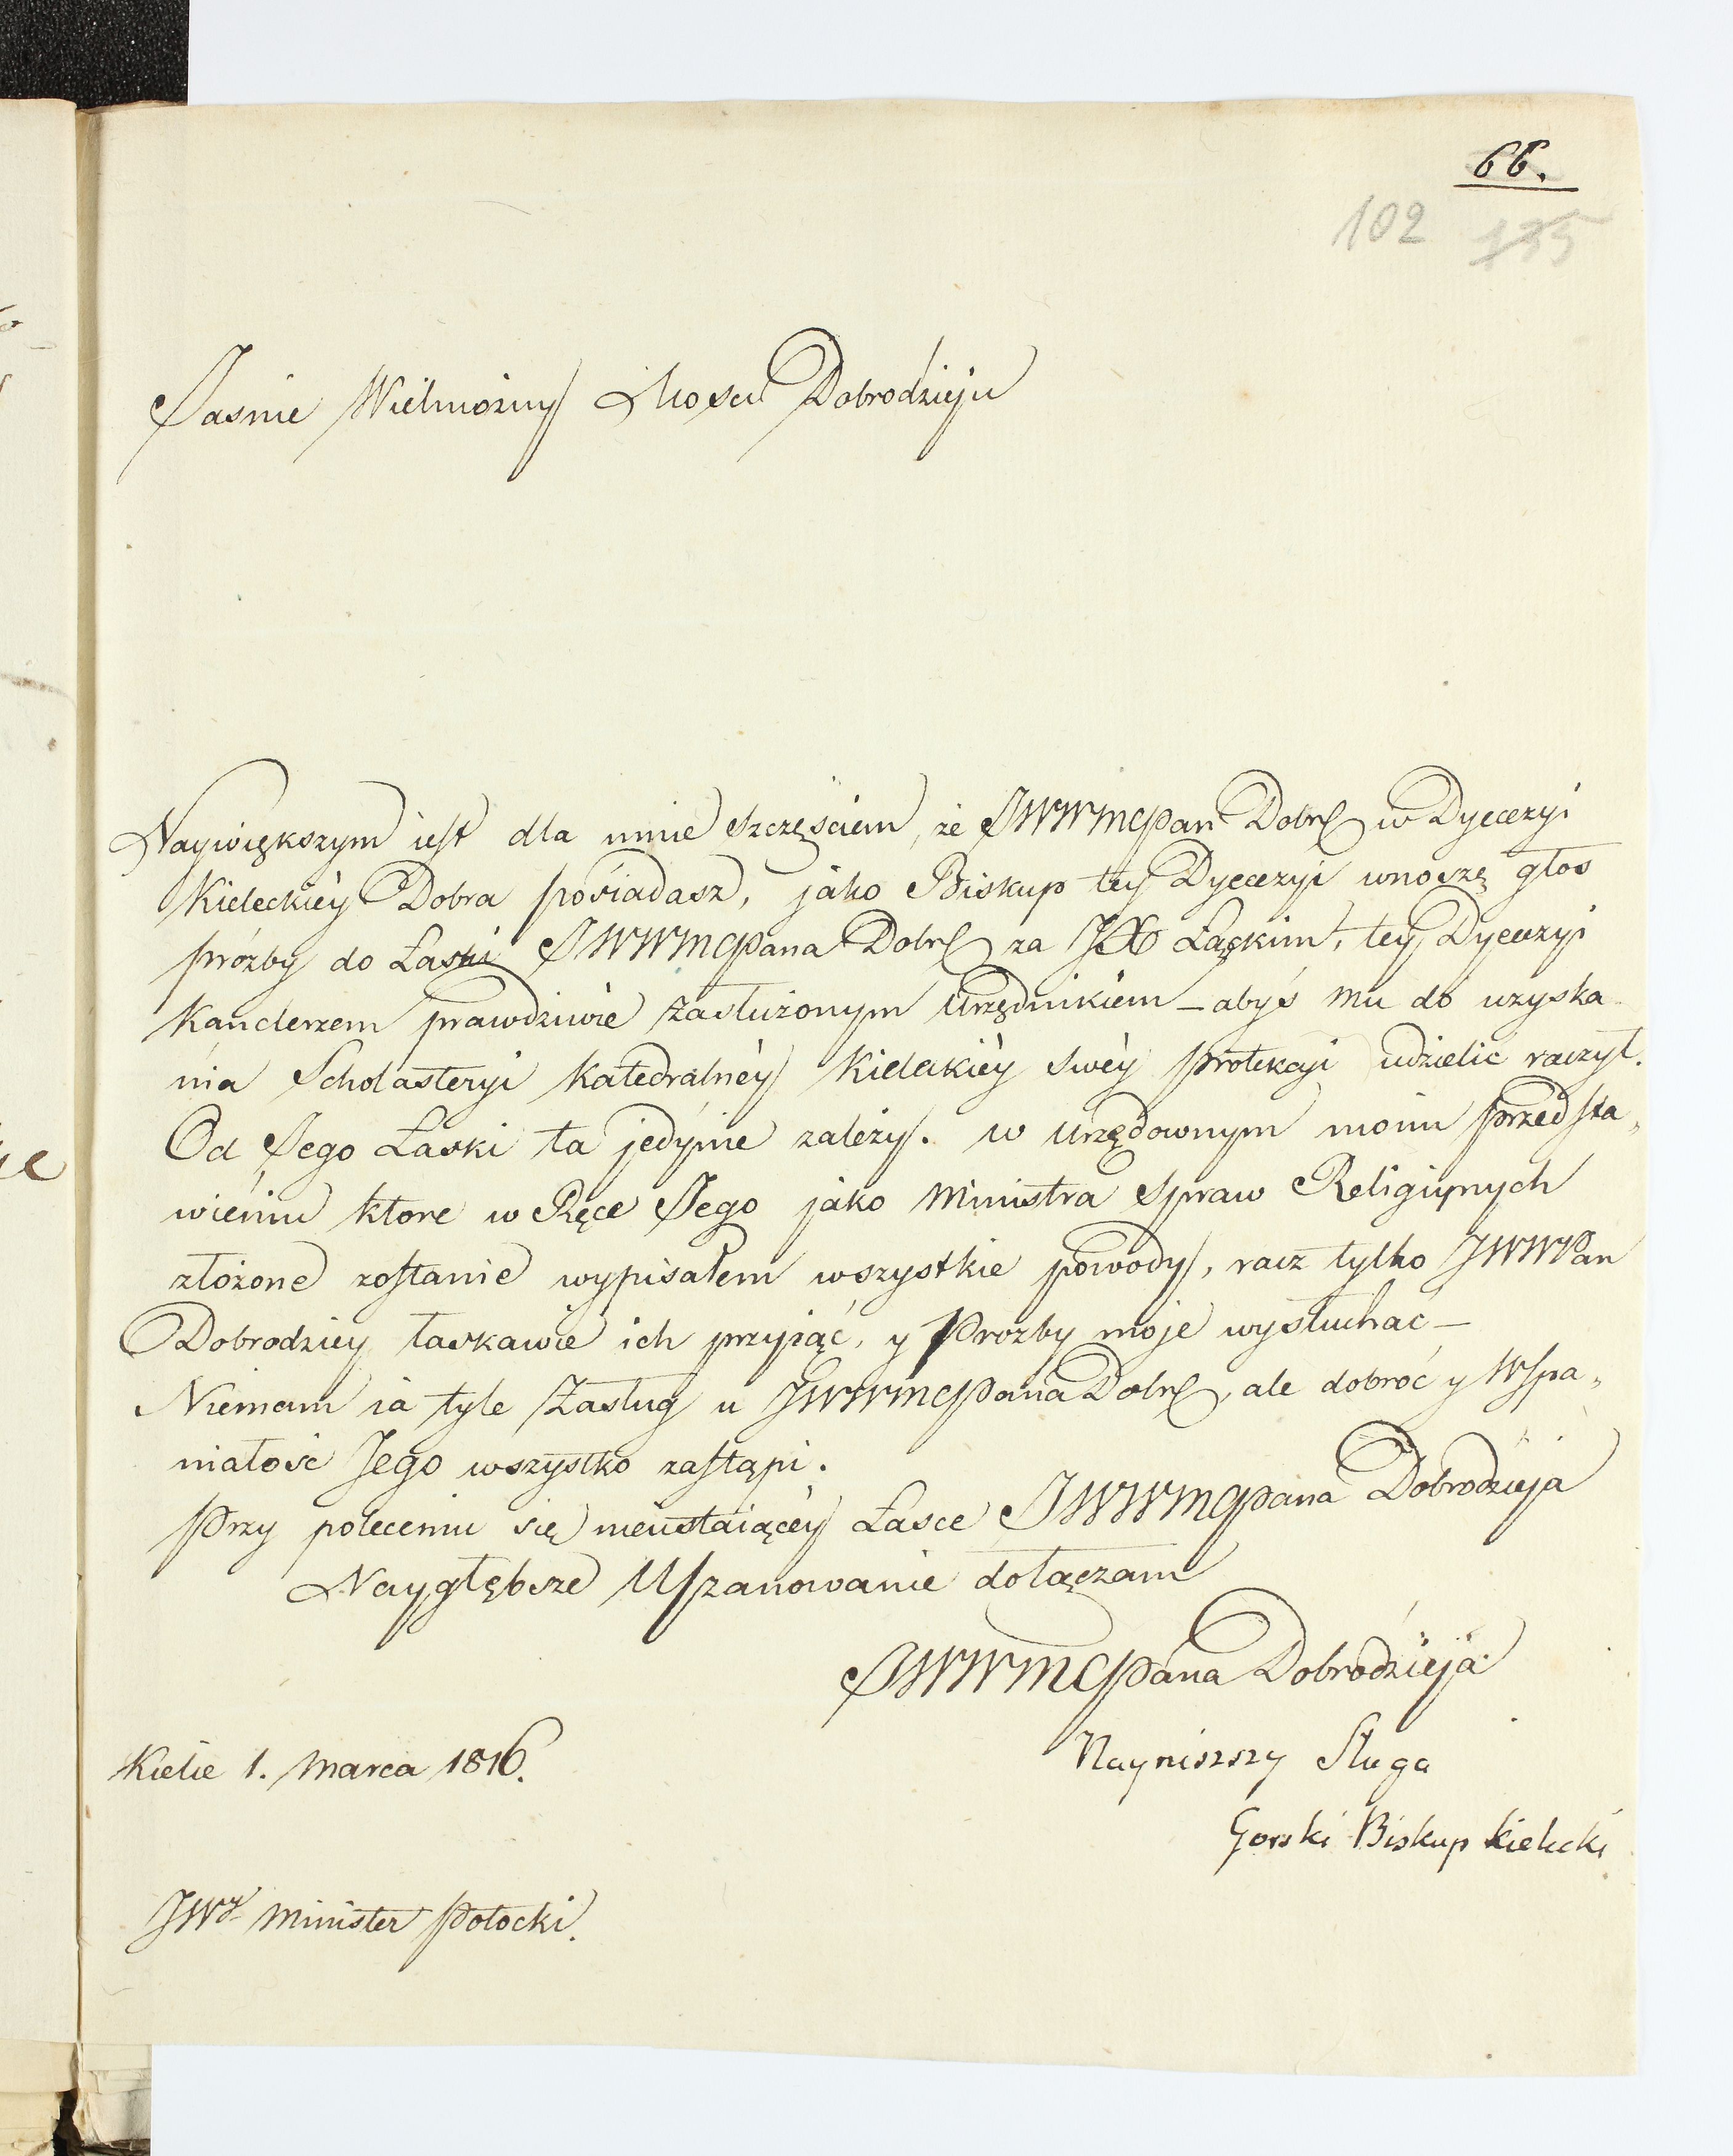 66.
102 135
Jasnie Wielmożny Mosci Dobrodzieju
Naywiększym iest dla mnie szczęściem, że JWWMCPan Dobr w Dyecezyi
Kieleckiéy Dobra posiadasz, jako Biskup tey Dyecezyi wnoszę głos
prózby do Łaski JWWMCPana Dobr za JX Łąckim, tey Dyecezyi
Kanclerzem prawdziwie zasłużonym Urzędnikiem – abyś mu do uzyska-
nia Scholasteryi Katedralnéy Kieleckiéy swéy protekcyi udzielić raczył.
Od Jego Łaski ta jedynie zależy. w urzędownym moim przedsta„
wieniu ktore w Ręce Jego jako Ministra Spraw Religiynych
złożone zostanie wypisałem wszystkie powody, racz tylko JWWPan
Dobrodziey łaskawie ich przyiąć, y Prozby moje wysłuchac –
Niemam ia tyle Zasług u JWWMCPana Dobr, ale dobroć y Wspa„
niałośc Jego wszystko zastąpi.
Przy poleceniu się nieustaiącéy Łasce JWWMCPana Dobrodzieja
Naygłębsze Uszanowanie dołączam
JWWMCPana Dobrodzieja
Kielce 1. Marca 1816.
Nayniszszy Sługa
Gorski Biskup Kielecki
JWy Minister Potocki.